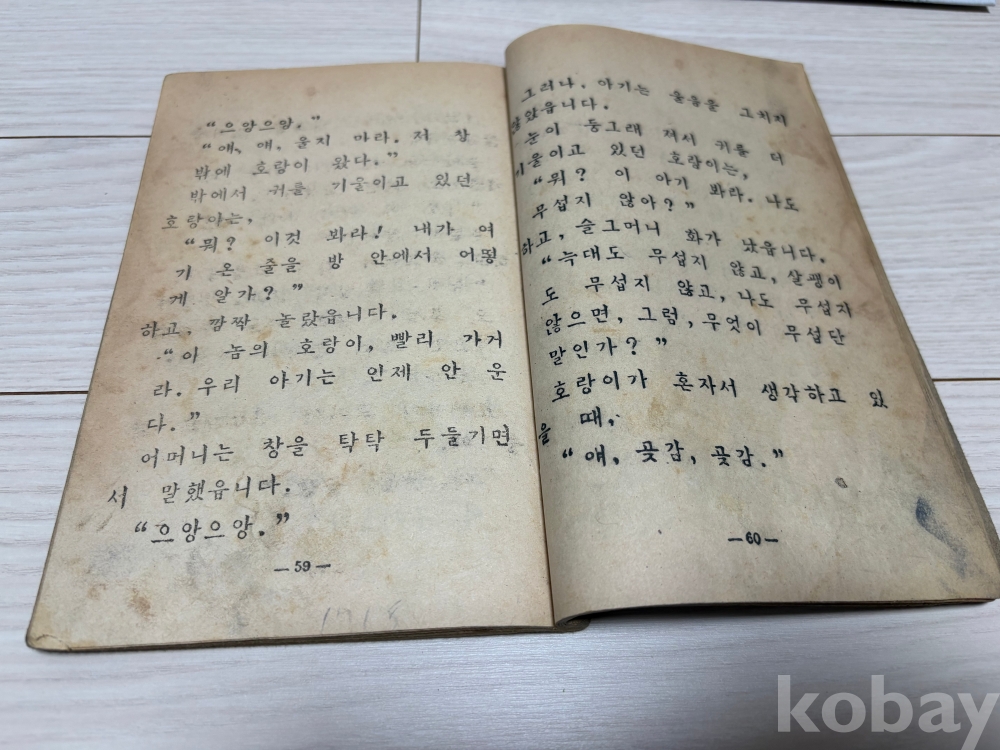 “으앙으앙.”
“얘, 얘, 울지 마라. 저 창
밖에 호랑이 왔다.”
밖에서 귀를 기울이고 있던
호랑이는,
“뭐? 이것 봐라! 내가 여
기 온 줄을 방 안에서 어떻
게 알가?”
하고, 깜짝 놀랐읍니다.
“이 놈의 호랑이, 빨리 가거
라. 우리 아기는 인제 안 운
다.”
어머니는 창을 탁탁 두들기면
서 말했읍니다.
“으앙으앙.”
—59—
그러나, 아기는 울음을 그치지
않았읍니다.
눈이 둥그래 져서 귀를 더
기울이고 있던 호랑이는,
“뭐? 이 아기 봐라. 나도
무섭지 않아?”
하고, 슬그머니 화가 났읍니다.
“늑대도 무섭지 않고, 살쾡이
도 무섭지 않고, 나도 무섭지
않으면, 그럼, 무엇이 무섭단
말인가?”
호랑이가 혼자서 생각하고 있
을 때,
“얘, 곶감, 곶감.”
—60—
kobay